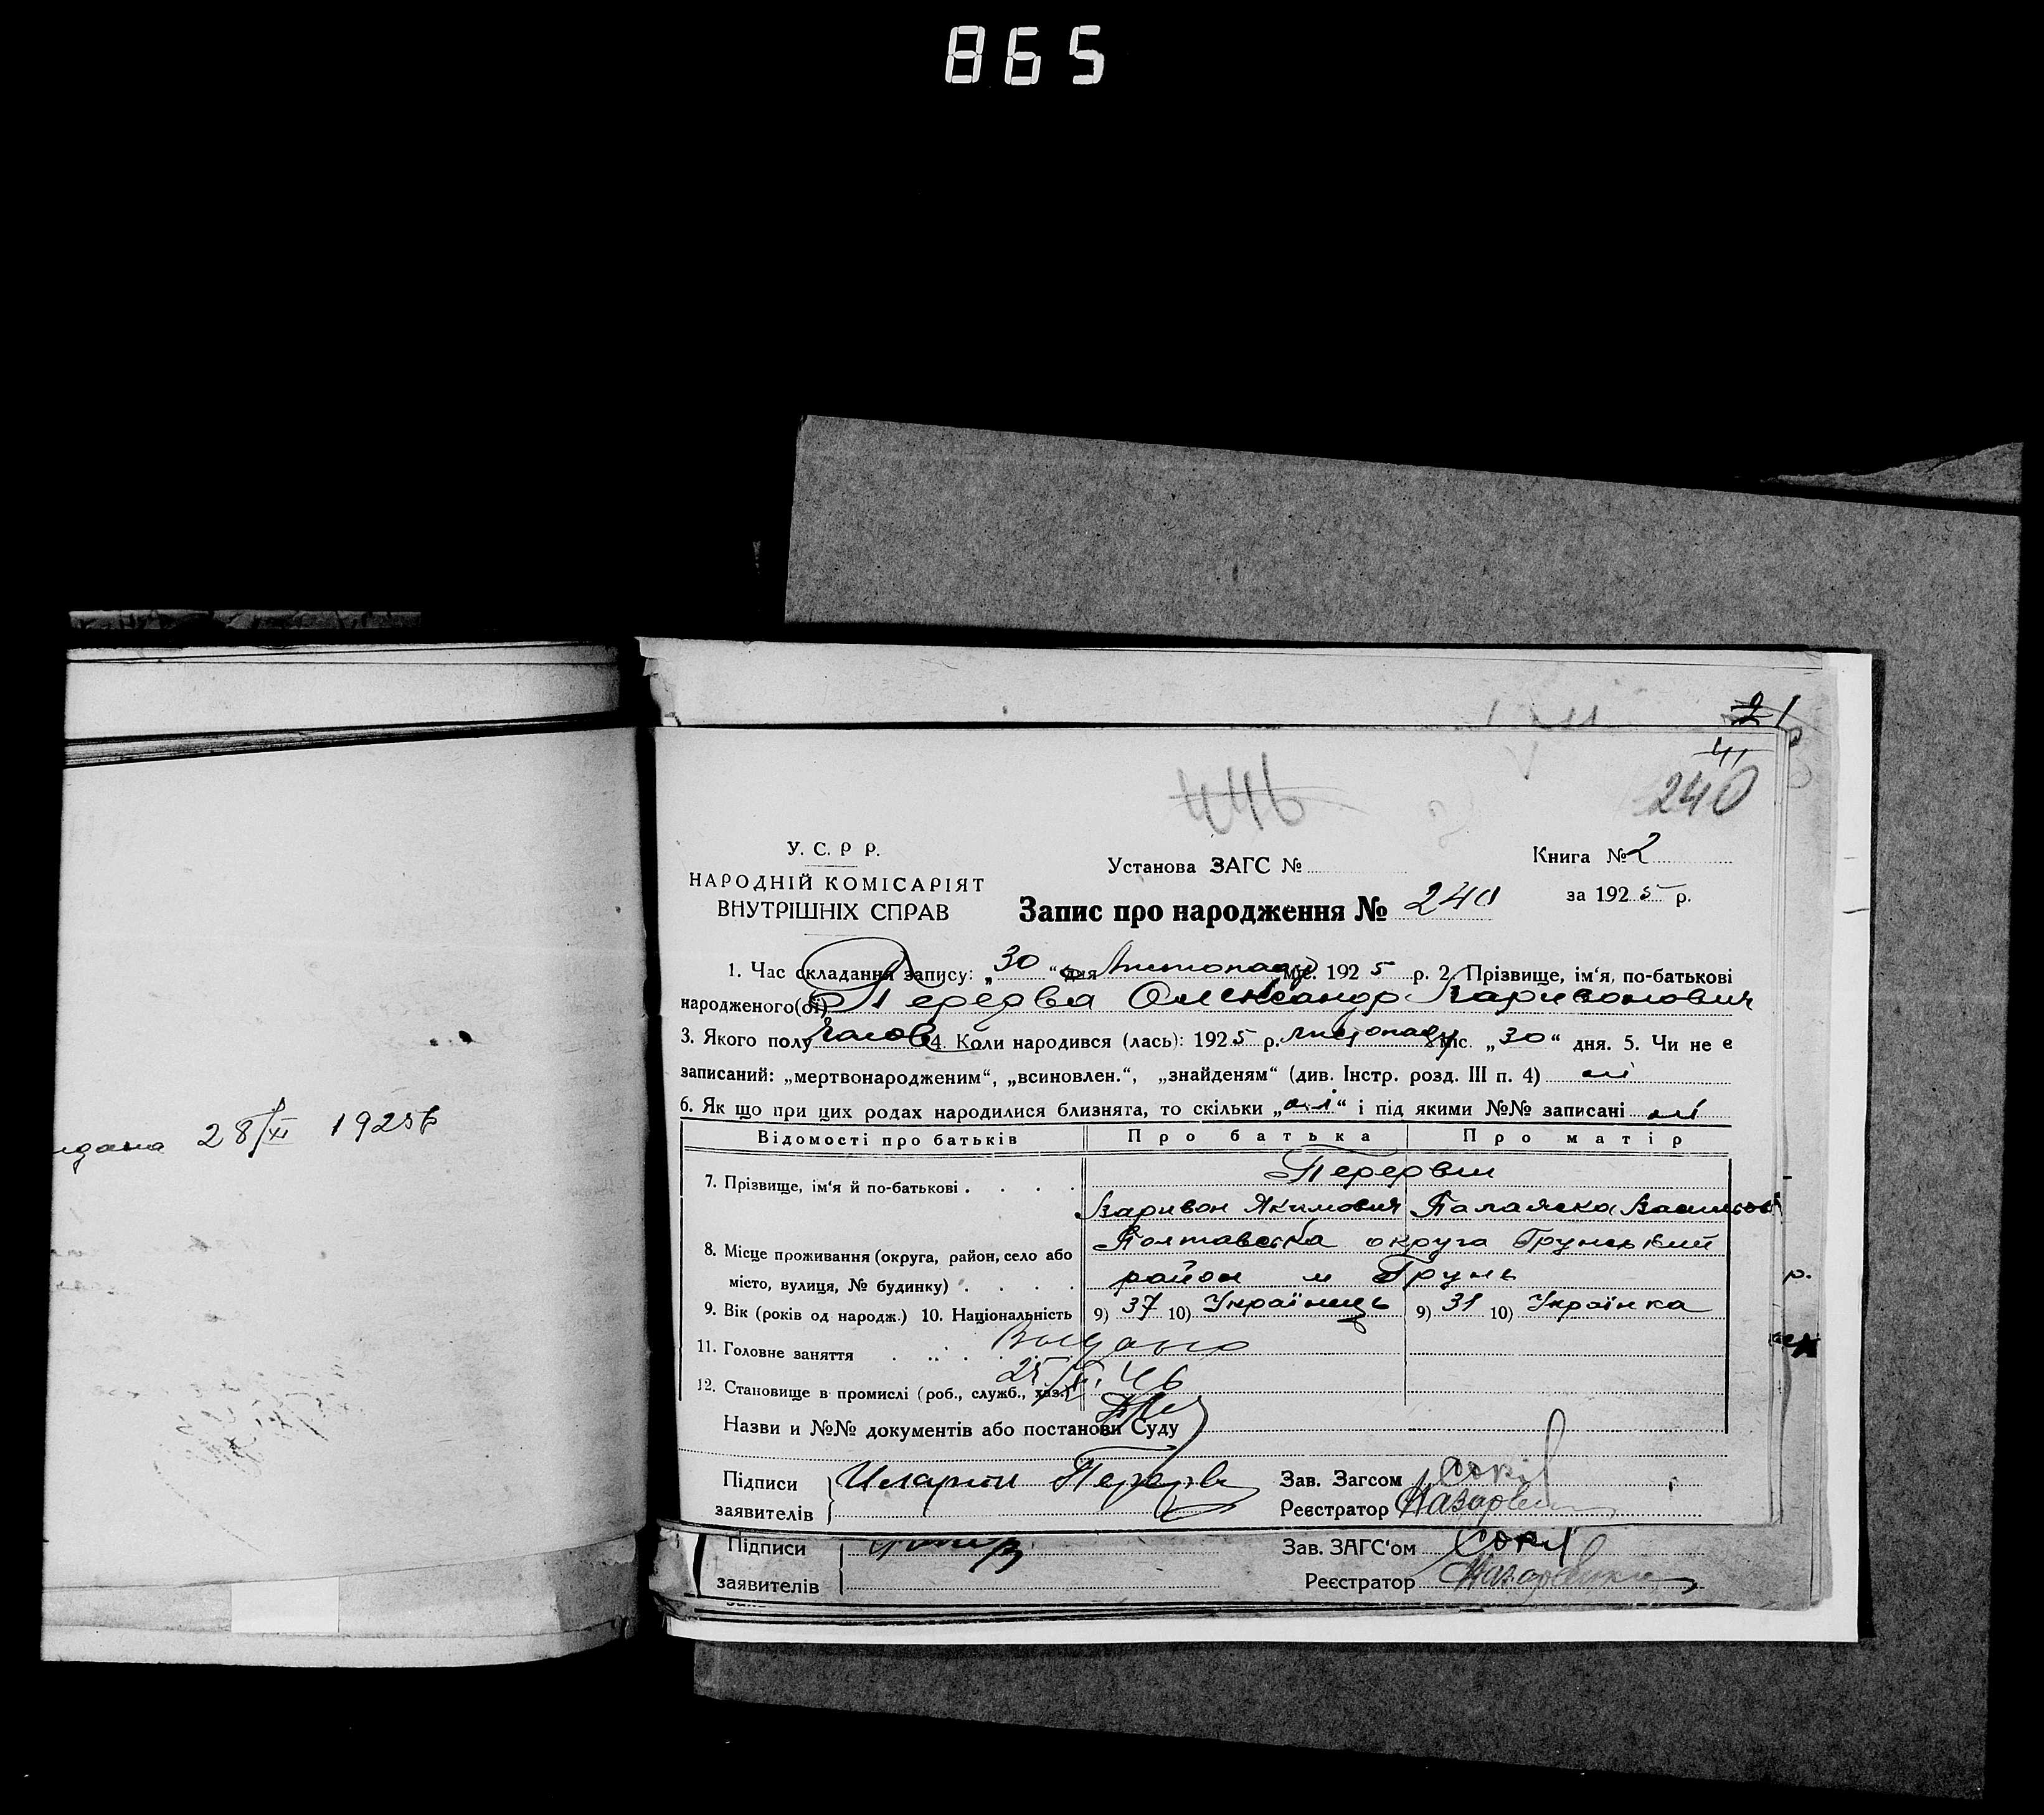 865
21
41
240
446
У. С. Р Р.
НАРОДНІЙ КОМІСАРІЯТ
ВНУТРІШНІХ СПРАВ
Установа ЗАГС №
Запис про народження № 240
Книга № 2
за 1925 р.
1. Час складання запису: „30“ дня Листопаду міс. 1925 р. 2. Прізвище, ім‘я, по-батькові
народженого(ої) Перерва Олександр Ларивонович
3. Якого полу чолов 4. Коли народився (лась): 1925 р. листопаду міс. „30“ дня. 5. Чи не є
записаний: „мертвонародженим“, „всиновлен.“, „знайденям“ (див. Інстр. розд. III п. 4) ні
6. Як що при цих родах народилися близнята, то скільки „ні“ і під якими №№ записані ні
Відомості про батьків Про батька Про матір
7. Прізвище, ім‘я й по-батькові . . . . Перерви
Ларивон Якимович Палажка
8. Місце проживання (округа, район, село або
місто, вулиця, № будинку) . . . .
Полтавська округа Грунський
район м Грунь
р.
9. Вік (років од народж.) 10. Національність 9) 37 10) Українець 9) 31 10) Українка
11. Головне заняття . . . .
Выдано
12. Становище в промислі (роб., служб., хаз.)
Назви и №№ документів або постанови Суду
Підписи
заявителів
Иларион Перерва
Зав. Загсом Сокіл
Реєстратор
Підписи
заявителів
Зав. ЗАГС‘ом Сокіл
Реєстратор
28/XI 1925